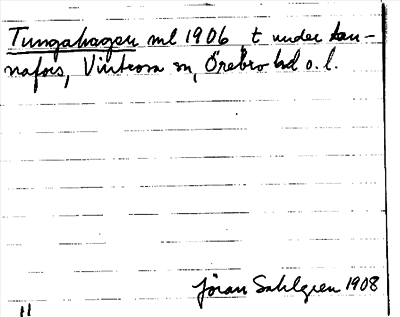 Tungahagen ml 1906, t under Lan-
nafors, Vintrosa sn, Örebro hd o. l.
Jöran Sahlgren 1908